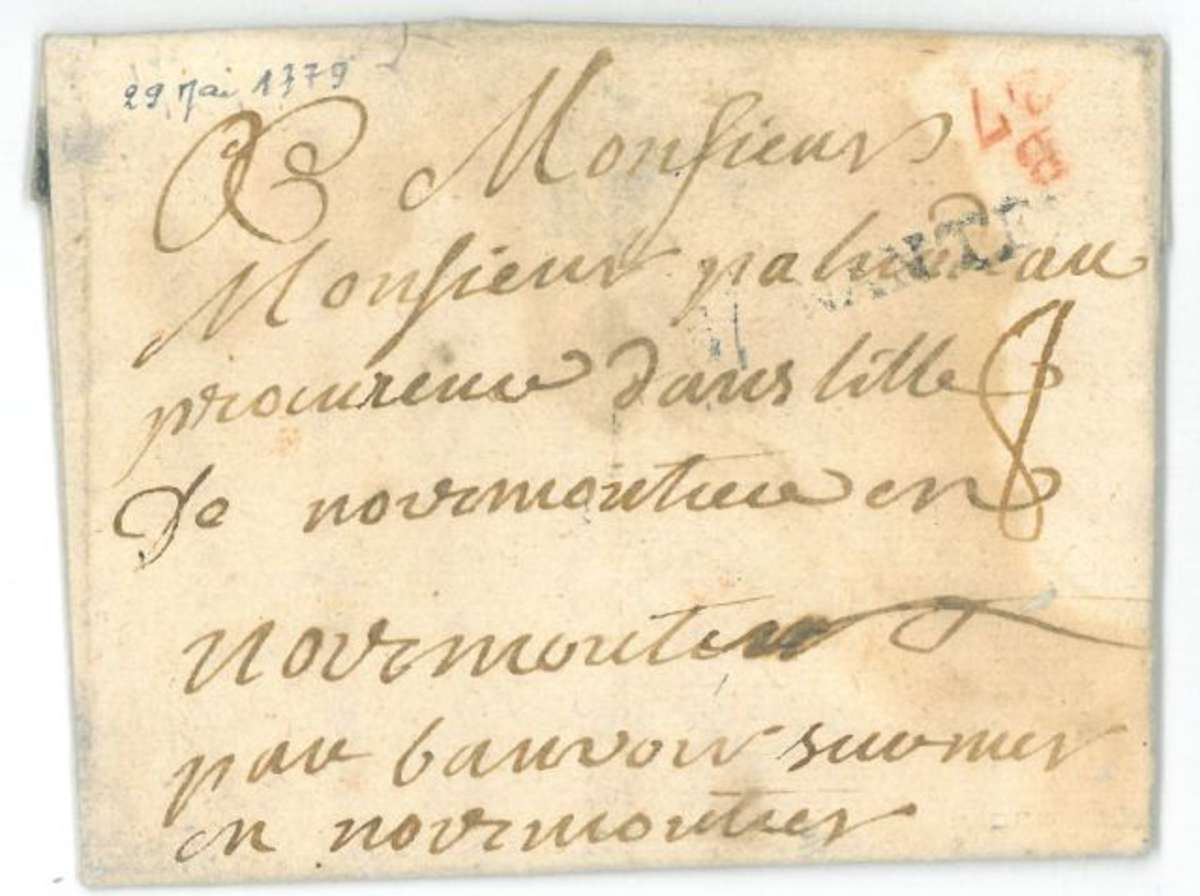 29 Mai 1779
A Monsieur
Monsieur palvadeau
procureur dans lille
De noirmoutier en
noirmoutier
par bauvoir sur mer
en noirmoutier
NANTES
8